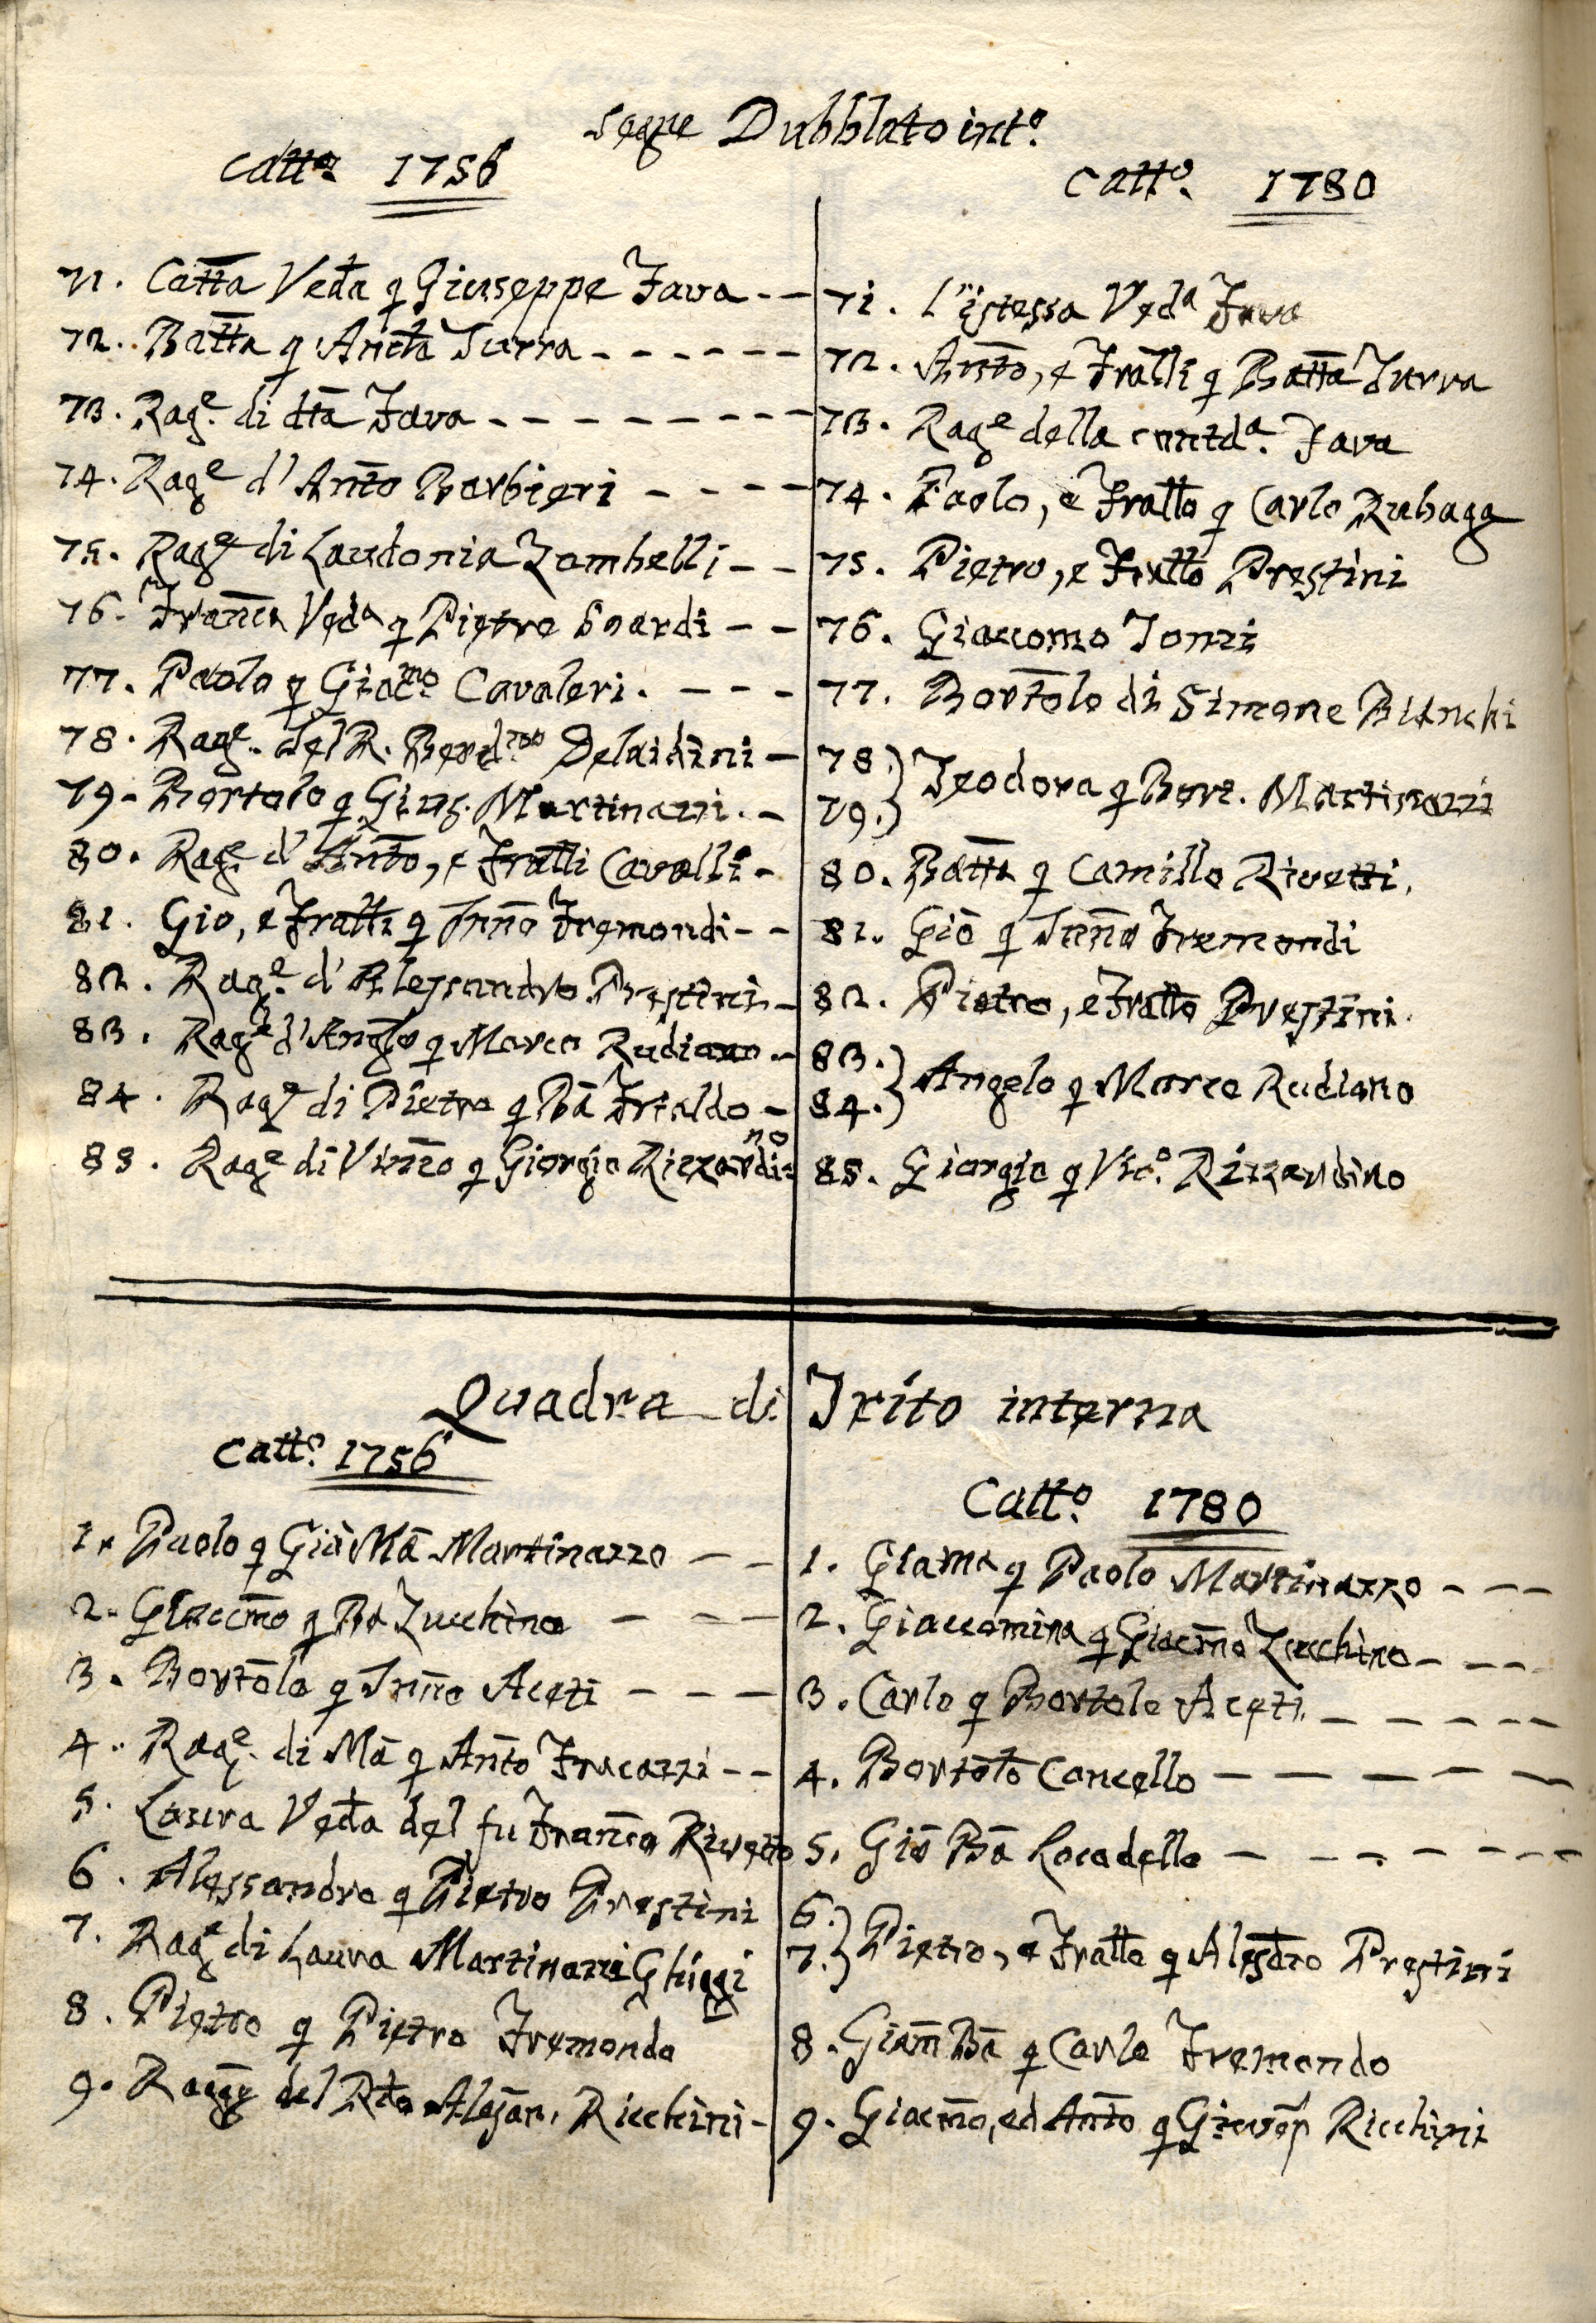 Segue Dubblato int.o
Catt.o 1756
Catt.o 1780
71. Catt̄a Ved̄a q Giuseppe Fava - -
72. Batt̄a q Anct̄a Turra - - - - - -
73. Rag.e di dt̄a Fava - - - - - - - -
74. Rag.e d'Ant̄o Barbieri - - - -
75. Rag.e di Laudonia Zambelli - -
76. Franc̄a Ved.a q Pietro Soardi - -
77. Paolo q Giac.mo Cavaleri. - - -
78. Rag.e del R. Berd.no Delaidini -
79. Bortolo q Gius. Martinazzi. -
80. Rag.e d'Ant̄o, e Frat̄li Cavalli -
81. Gio, e Frat̄li q Inn̄o Fremondi - -
82. Rag.e d'Alessandro Prestini -
83. Rag.e d'Anglo q Marco Rudiano -
84. Rag.e di Pietro q Bā Frialdo -
85. Rag.e di Vinc̄o q Giorgio Rizzardino
71. L'istessa Ved.a Fava
72. Ant̄o, e Frat̄li q Batt̄a Turra
73. Rag.e della contd.a Fava
74. Paolo, e Fratt̄o q Carlo Rubagg
75. Pietro, e Fratt̄o Prestini
76. Giaccomo Tonzi
77. Bort̄olo di Simone Bianchi
78.
79.} Teodora q Bort. Martinazzi
80. Batt̄a q Camillo Rivetti.
81. Giō q Inn̄o Fremondi
82. Pietro, e Fratt̄o Prestini.
83.
84.} Angelo q Marco Rudiano
85. Giorgio q Vic.o Rizzardino
Quadra di Trito interna
Catt.o 1756
Catt.o 1780
1. Paolo q Giō Mā Martinazzo - -
2. Giaccm̄o q Bā Zucchino - - -
3. Bort̄olo q Inn̄o Aceti - - -
4. Rag.e di Mā q Ant̄o Fracazzi - -
5. Laura Ved̄a del fu Franc̄o Rivetto
6. Alessandro q Pietro Prestini
7. Rag.e di Laura Martinazzi Ghiggi
8. Pietro q Pietro Fremondo
9. Ragḡe del Rd̄o Alesān. Ricchini -
1. Giama q Paolo Martinazzo - - -
2. Giaccomina q Giacm̄o Zucchino - - -
3. Carlo q Bortolo Aceti - - - - -
4. Bort̄olō Concello - - - - - -
5. Giō Bā Locadello - - - - - - -
6.
7.} Pietro, e Fratt̄o q Alesd̄ro Prestini
8. Giām Bā q Carlo Fremondo
9. Giacm̄o, ed Ant̄o q Giusep̄ Ricchini